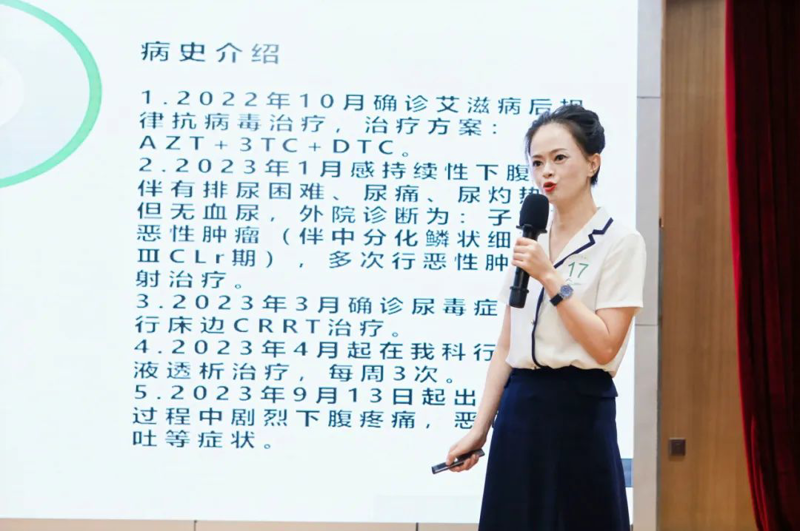 病史介绍
1.2022年10月确诊艾滋病后规
律抗病毒治疗，治疗方案：
AZT+3TC+DTC。
2.2023年1月感持续性下腹
伴有排尿困难、尿痛、尿灼热
但无血尿，外院诊断为：子
恶性肿瘤（伴中分化鳞状细
ⅢCLr期），多次行恶性肿
射治疗。
3.2023年3月确诊尿毒症
行床边CRRT治疗。
4.2023年4月起在我科行
液透析治疗，每周3次。
5.2023年9月13日起出
过程中剧烈下腹疼痛，恶
吐等症状。
17